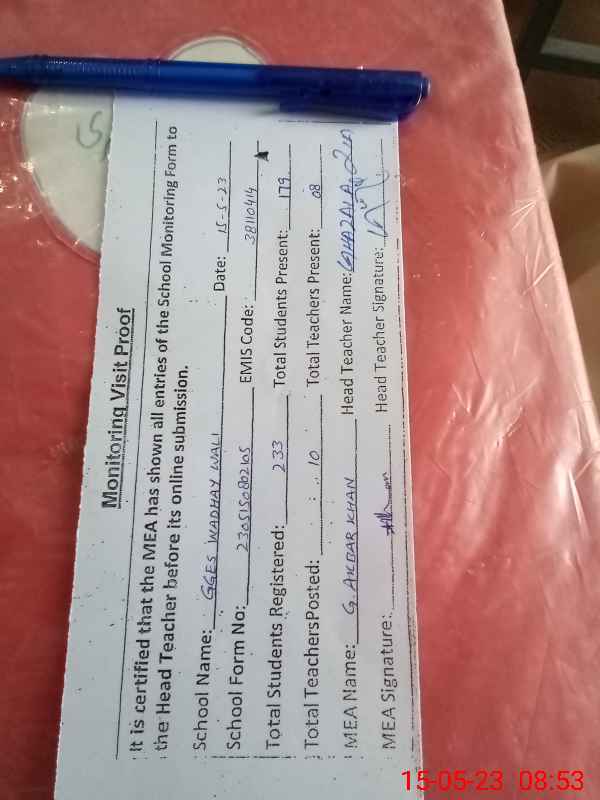 Monitoring Visit Proof
It is certified that the MEA has shown all entries of the School Monitoring Form to
the Head Teacher before its online submission.
School Name: GGES WADHAY WALI Date: 15-5-23
School Form No: 2305150802165 EMIS Code: 38110414
Total Students Registered: 233 Total Students Present: 179
Total TeachersPosted: 10 Total Teachers Present: 08
MEA Name: G. AKBAR KHAN Head Teacher Name:
MEA Signature: Head Teacher Signature:
15-05-23 08:53